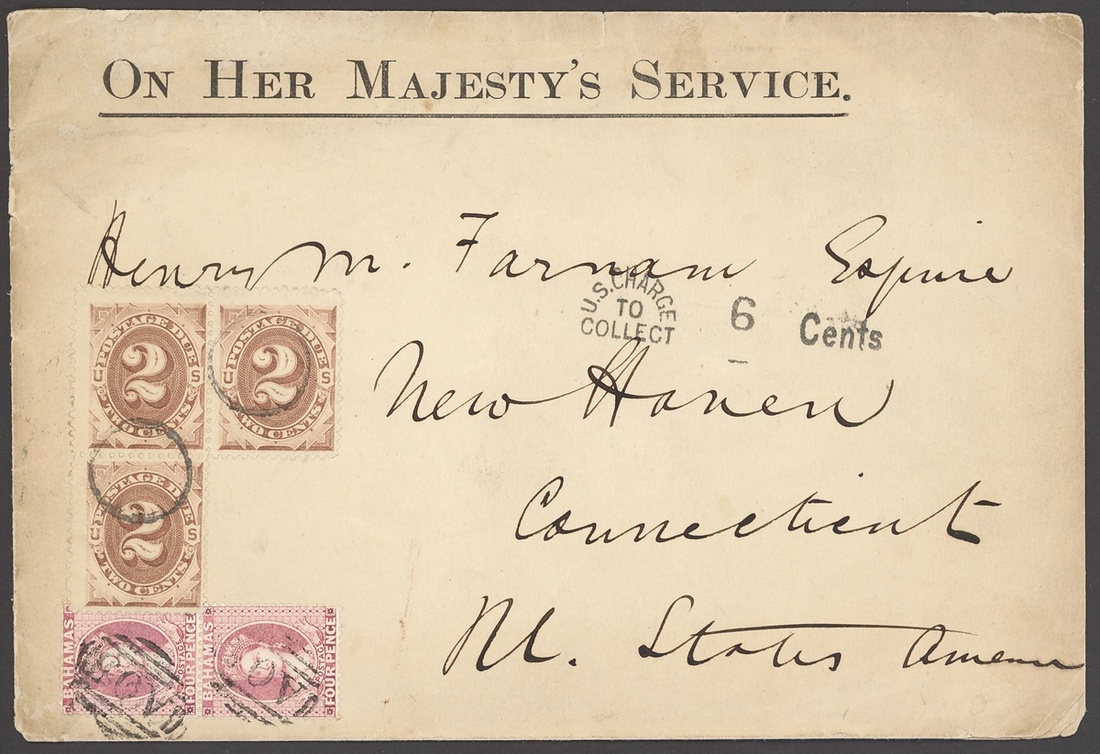 ON HER MAJESTY'S SERVICE.
Henry M. Farnam Esquire
U.S. CHARGE
TO
COLLECT
6
Cents
New Haven
Connecticut
POSTAGE DUE
U 2 S
TWO CENTS
POSTAGE DUE
U 2 S
TWO CENTS
POSTAGE DUE
U 2 S
TWO CENTS
States
BAHAMAS
POSTAGE
FOUR PENCE
BAHAMAS
POSTAGE
FOUR PENCE